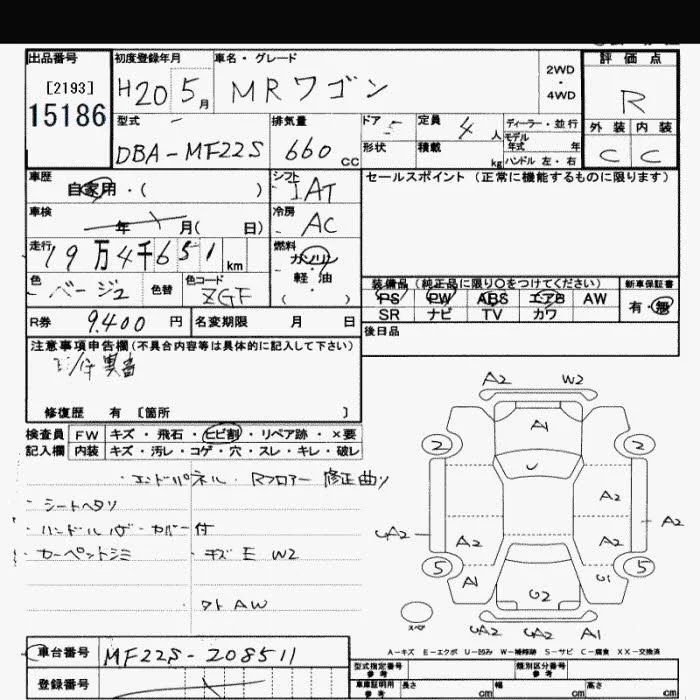 出品番号 初度登録年月 車名・グレード 評価点
[2193] 15186 H20 5月 MRワゴン 2WD ・ 4WD R
型式 排気量 ドア 5 定員 4人 ディーラー・並行 外装 内装
DBA-MF22S 660cc 形状 積載 kg モデル年式 年 ハンドル 左・右 C C
車歴 自家用・( ) シフト IAT セールスポイント (正常に機能するものに限ります)
車検 年 月( 日) 冷房 AC
走行 19万4千651km 燃料 ガソリン 軽・油 ( ・ )
色 ベージュ 色替 色コード ZGF
装備品 (純正品に限り○をつけてください) 新車保証書
PS PW ABS エアB AW 有・無
SR ナビ TV カワ
R券 9,400円 名変期限 月 日 後日品
注意事項申告欄(不具合内容等は具体的に記入して下さい)
異音
修復歴 有 [箇所 ]
検査員 FW キズ・飛石・ヒビ割・リペア跡・×要
記入欄 内装 キズ・汚レ・コゲ・穴・スレ・キレ・破レ
・エンドパネル・Rフロアー 修正曲リ
・シートヘタリ
・ハンドル カバー付
・カーペットシミ ・キズ E W2
タト AW
A2 W2
A1
2 2
A2
A2 A2 A2
5 5
A1 U1
U2
スペア A2 A2 A1
A-キズ E-エクボ U-凹み W-補修跡 S-サビ C-腐食 XX-交換済
車台番号 MF22S-208511
型式指定番号 参考 類別区分番号 参考
登録番号
車庫証明用 参考 長さ cm 幅 cm 高さ cm